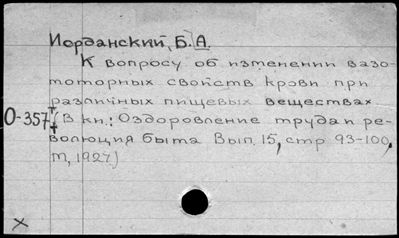 Иорданский, Б. А.
К вопросу об изменении вазо-
моторных свойств крови при
различных пищевых веществах.
О-357 (В кн.: Оздоровление труда и ре-
волюция быта Вып. 15, стр 93-100,
М, 1927)